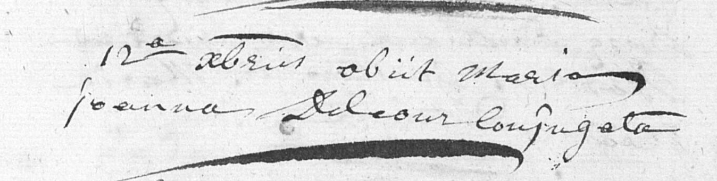 12a xbris obiit Maria
joanna Delcour Conjugata